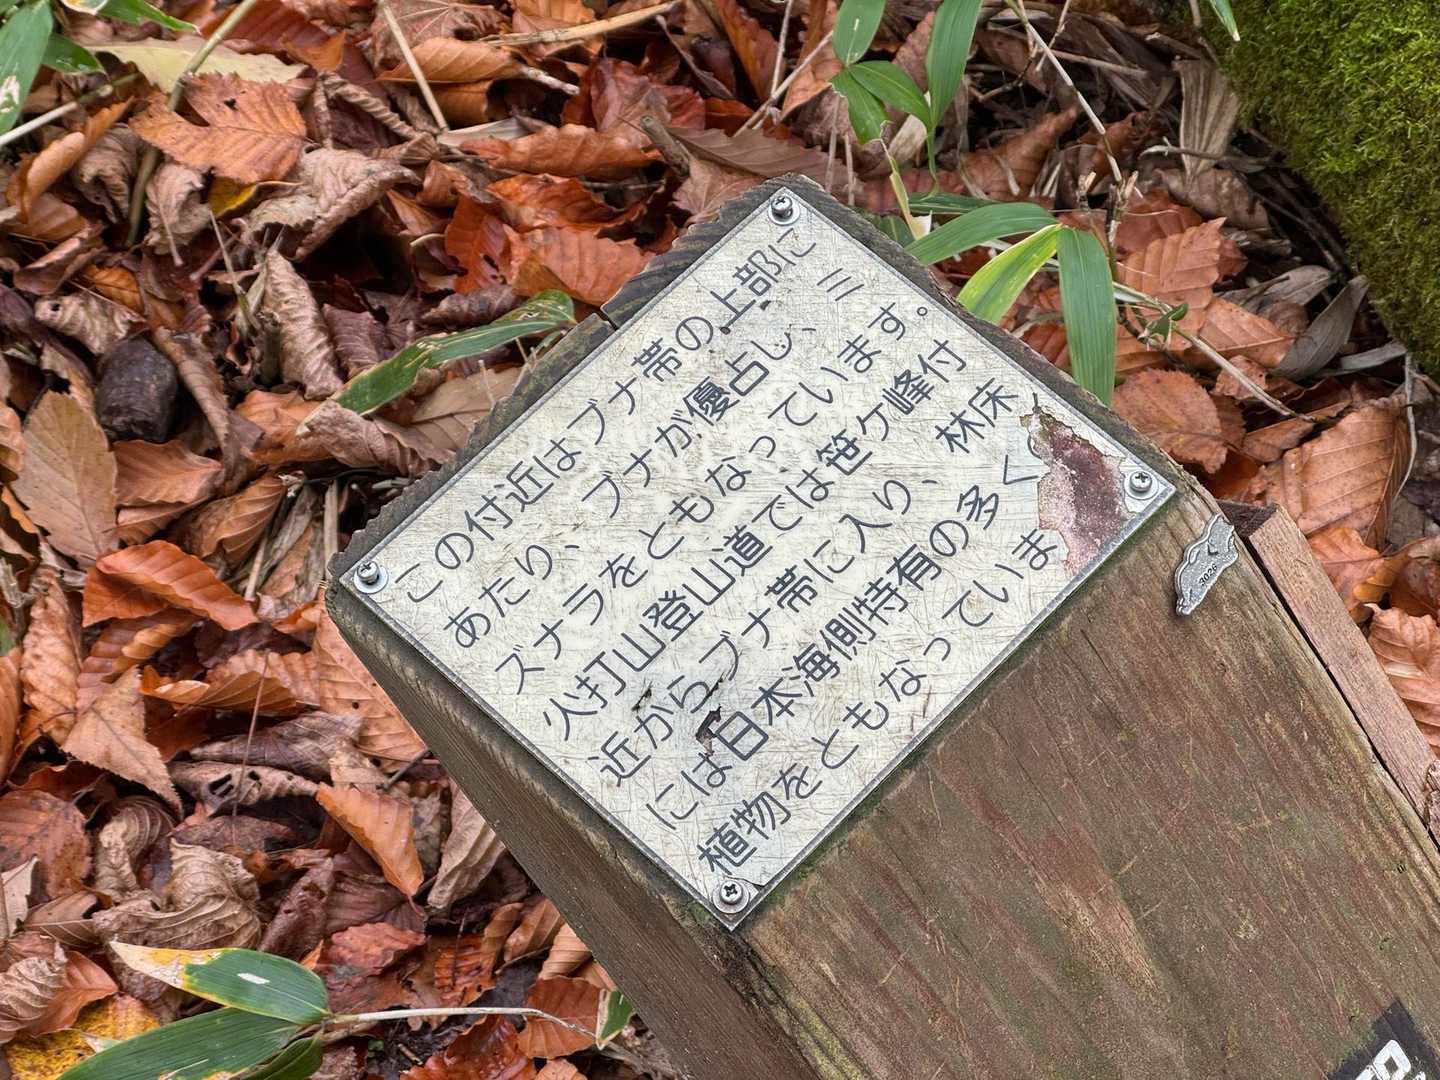 この付近はブナ帯の上部に
あたり、ブナが優占し、ミ
ズナラをともなっています。
火打山登山道では笹ケ峰付
近からブナ帯に入り、林床
には日本海側特有の多く
植物をともなっていま
3026